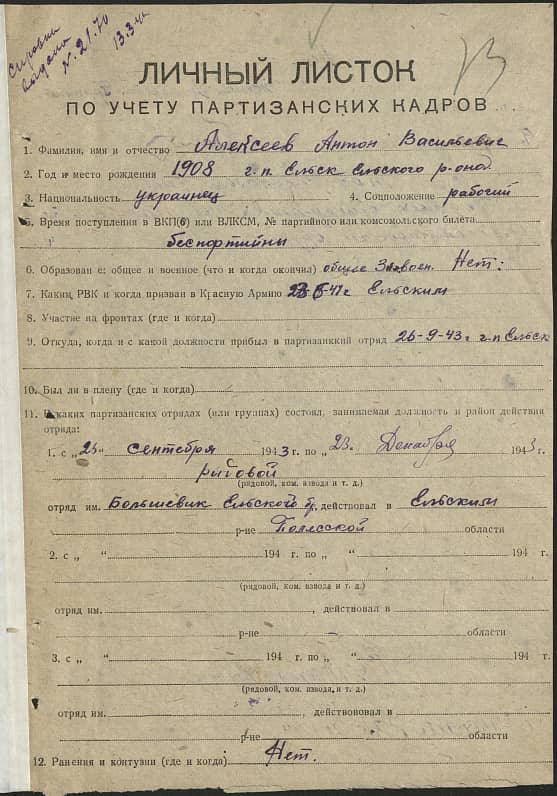 Справка
выдана
№ 21.70
13.3.
73
ЛИЧНЫЙ ЛИСТОК
ПО УЧЕТУ ПАРТИЗАНСКИХ КАДРОВ
1. Фамилия, имя и отчество Алексеев Антон Васильевич
2. Год и место рождения 1908 г.п. Ельск Ельского р-она
3. Национальность украинец 4. Соцположение рабочий
5. Время поступления в ВКП(б) или ВЛКСМ, № партийного или комсомольского билета
беспортийны
6. Образован е: общее и военное (что и когда окончил) общее 3 военн. Нет:
7. Каким РВК и когда призван в Красную Армию 41 г Ельским
8. Участие на фронтах (где и когда)
9. Откуда, когда и с какой должности прибыл в партизанккий отряд 26-9-43 г. г.п Ельск
10. Был ли в плену (где и когда)
11. В каких партизанских отрядах (или группах) состоял, занимаемая должность и район действия
отряда:
1. с „ “ сентебря 1943 г. по „23. Декабря 1943 г.
ридовой
(рядовой, ком. взвода и т. д.)
отряд им. Большевик Ельского бр. действовал в Ельским
р-не Полесской области
2. с „ “ 194 г. по „ “ 194 г.
(рядовой, ком. взвода и т. д.)
отряд им. , действовал в
р-не области
3. с „ “ 194 г. по „ “ 194 г.
(рядовой, ком. взвода, и т. д.)
отряд им. , действовал в
р-не области
12. Ранения и контузии (где и когда) Нет.